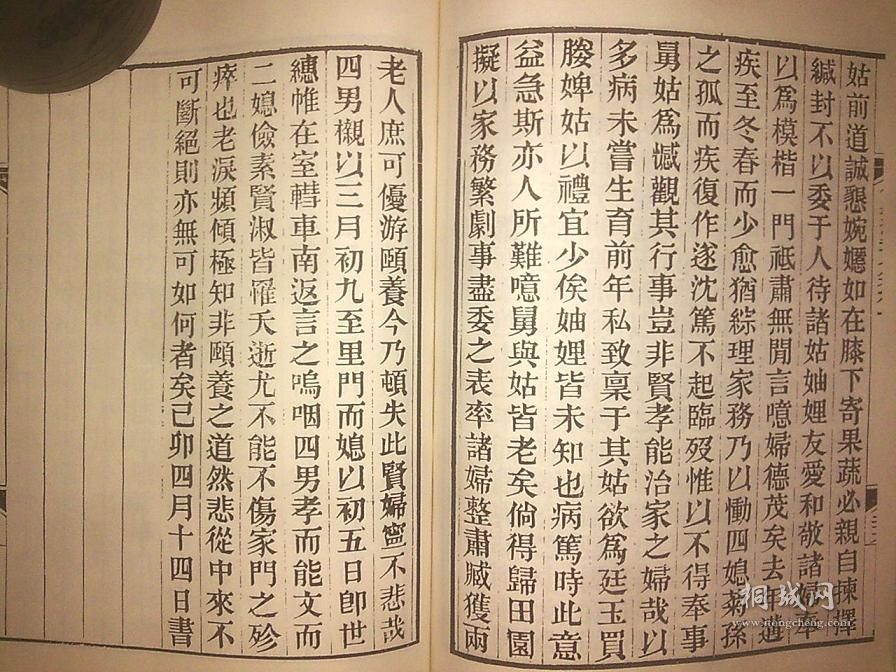 姑前道誠懇婉嬺如在膝下寄果蔬必親自揀擇
緘封不以委于人待諸姑妯娌友愛和敬諸婦奉
以為模楷一門祗肅無閒言噫婦德茂矣去年遘
疾至冬春而少愈猶綜理家務乃以慟四媳菊孫
之孤而疾復作遂沈篤不起臨歿惟以不得奉事
舅姑為憾觀其行事豈非賢孝能治家之婦哉以
多病未嘗生育前年私致稟于其姑欲為廷玉買
媵婢姑以禮宜少俟妯娌皆未知也病篤時此意
益急斯亦人所難噫舅與姑皆老矣倘得歸田園
擬以家務繁劇事盡委之表率諸婦整肅臧獲兩
老人庶可優游頤養今乃頓失此賢婦寧不悲哉
四男櫬以三月初九至里門而媳以初五日卽世
繐帷在室轊車南返言之嗚咽四男孝而能文而
二媳儉素賢淑皆罹夭逝尤不能不傷家門之殄
瘁也老淚頻傾極知非頤養之道然悲從中來不
可斷絕則亦無可如何者矣己卯四月十四日書
桐城网
www.itongcheng.com